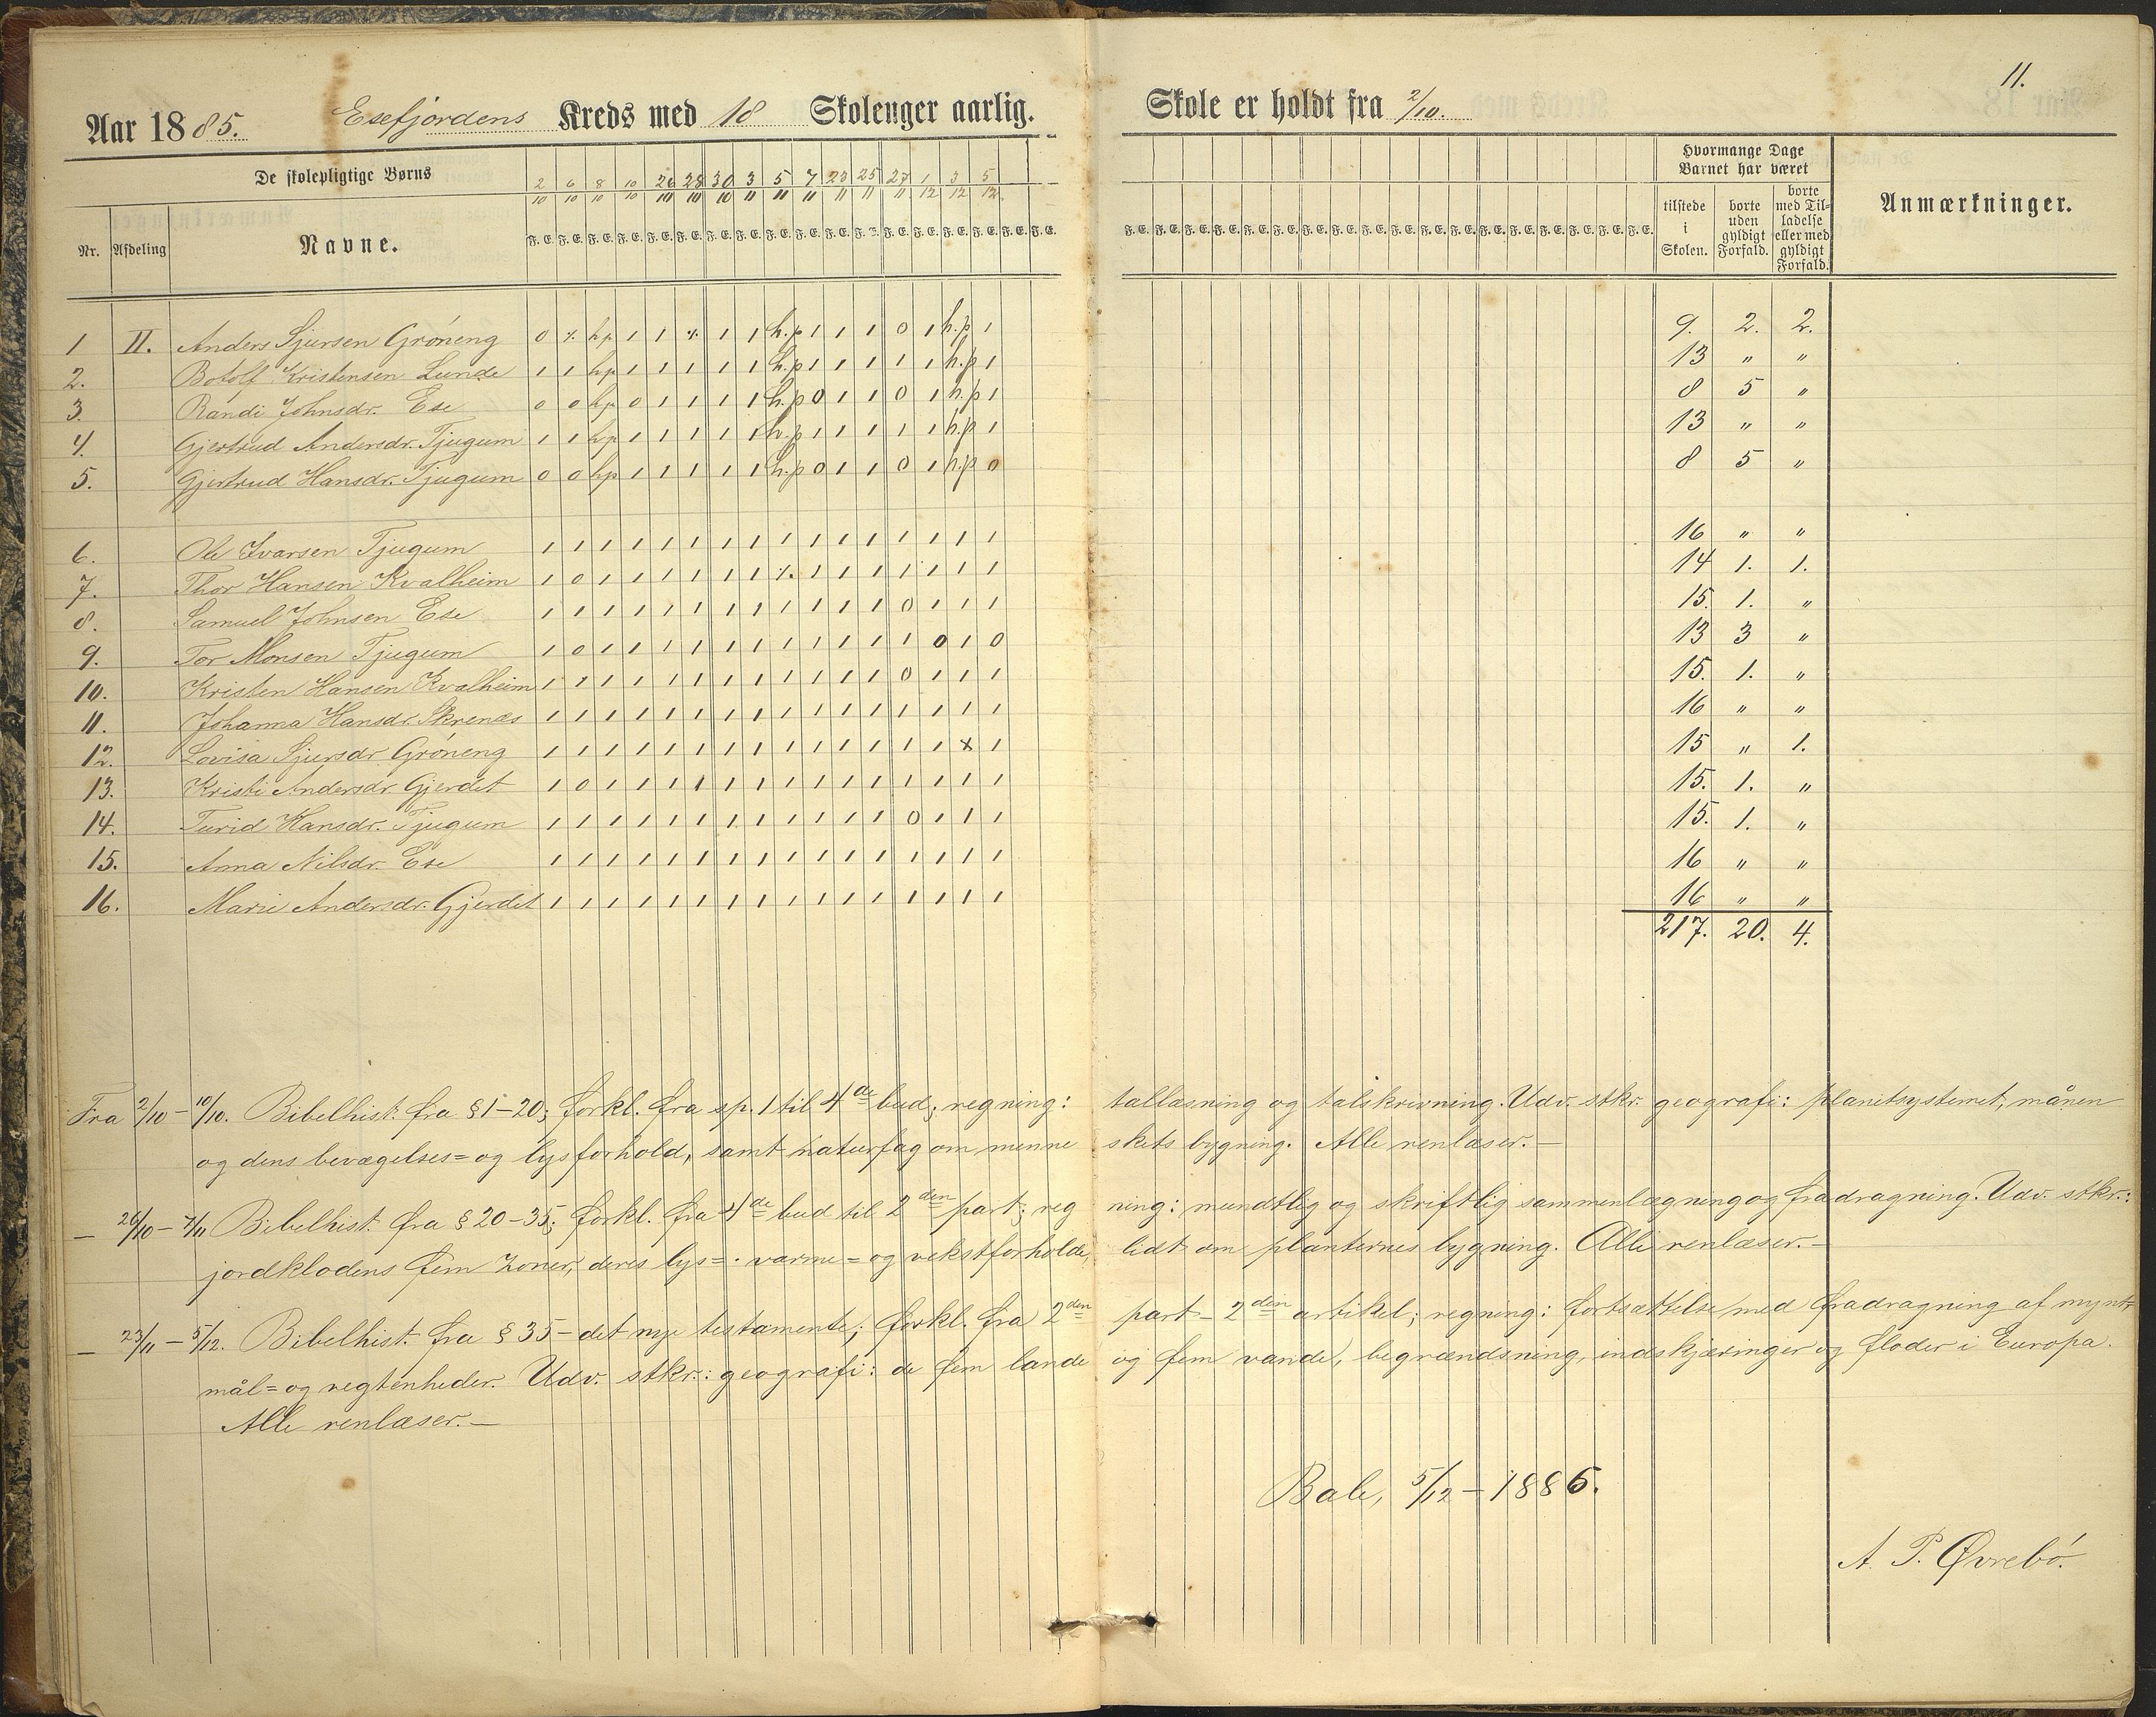 11.
Aar 1885. Esefjordens Kreds med 18 Skoleuger aarlig. Skole er holdt fra 2/10.
De skolepligtige Børns
Hvormange Dage Barnet har været
Nr. Afdeling Navne.
2/10 6/10 8/10 10/10 26/10 28/10 30/10 3/11 5/11 7/11 23/11 25/11 27/11 1/12 3/12 5/12.
F. E. F. E. F. E. F. E. F. E. F. E. F. E. F. E. F. E. F. E. F. E. F. E. F. E. F. E. F. E. F. E. F. E. F. E.
F. E. F. E. F. E. F. E. F. E. F. E. F. E. F. E. F. E. F. E. F. E. F. E. F. E. F. E. F. E. F. E. F. E. F. E.
tilstede i Skolen.
borte uden gyldigt Forfald.
borte med Tilladelse eller med gyldigt Forfald.
Anmærkninger.
1 II. Anders Sjursen Gróneng 0 ⁒ h.p 1 1 ⁒ 1 1 h.p 1 1 1 0 1 h.p 1 9. 2. 2.
2. Botolf Kristensen Lunde 1 1 h.p 1 1 1 1 1 h.p 1 1 1 1 1 h.p 1 13 " "
3. Randi Johnsdr. Ese 0 0 h.p 0 1 1 1 1 h.p 0 1 1 0 1 h.p 1 8 5 "
4. Gjertrud Andersdr. Tjugum 1 1 h.p 1 1 1 1 1 h.p 1 1 1 1 1 h.p 1 13 " "
5. Gjertrud Hansdr. Tjugum 0 0 h.p 1 1 1 1 1 h.p 0 1 1 0 1 h.p 0 8 5 "
6. Ole Ivarsen Tjugum 1 1 1 1 1 1 1 1 1 1 1 1 1 1 1 1 16 " "
7. Thor Hansen Kvalheim 1 0 1 1 1 1 1 1 ⁒ 1 1 1 1 1 1 1 14 1. 1.
8. Samuel Johnsen Ese 1 1 1 1 1 1 1 1 1 1 1 1 0 1 1 1 15. 1. "
9. Tor Monsen Tjugum 1 0 1 1 1 1 1 1 1 1 1 1 1 0 1 0 13 3 "
10. Kristen Hansen Kvalheim 1 1 1 1 1 1 1 1 1 1 1 1 0 1 1 1 15. 1. "
11. Johanna Hansdr. Skrenæs 1 1 1 1 1 1 1 1 1 1 1 1 1 1 1 1 16 " "
12. Lovisa Sjursdr Gróneng 1 1 1 1 1 1 1 1 1 1 1 1 1 1 x 1 15 " 1.
13. Kristi Andersdr Gjerdet 1 0 1 1 1 1 1 1 1 1 1 1 1 1 1 1 15. 1. "
14. Turid Hansdr. Tjugum 1 1 1 1 1 1 1 1 1 1 1 1 0 1 1 1 15. 1. "
15. Anna Nilsdr. Ese 1 1 1 1 1 1 1 1 1 1 1 1 1 1 1 1 16 " "
16. Marie Andersdr. Gjerdet 1 1 1 1 1 1 1 1 1 1 1 1 1 1 1 1 16 " "
217. 20. 4.
Fra 2/10 – 10/10. Bibelhist. fra § 1–20; forkl. fra sp. 1 til 4de bud; regning: tallæsning og talskrivning. Udv. stkr. geografi: planetsystemet, månen
og dens bevægelses= og lysforhold, samt naturfag om menneskets bygning. Alle renlæser.–
– 26/10 – 7/11 Bibelhist. fra § 20–35; forkl. fra 4de bud til 2den part; regning: mundtlig og skriftlig sammenlægning og fradragning. Udv. stkr.:
jordklodens fem zoner, deres lys=, varme= og vekstforholde, lidt om planternes bygning. Alle renlæser.–
– 23/11 – 5/12. Bibelhist. fra § 35 – det nye testamente; forkl. fra 2den part – 2den artikel; regning: fortsættelse med fradragning af mynt,
mål= og vegtenheder. Udv. stkr.: geografi: de fem lande og fem vande, begrændsning, indskjæringer og floder i Europa.
Alle renlæser.–
Bale, 5/12 – 1886.
A. P. Øvrebó.